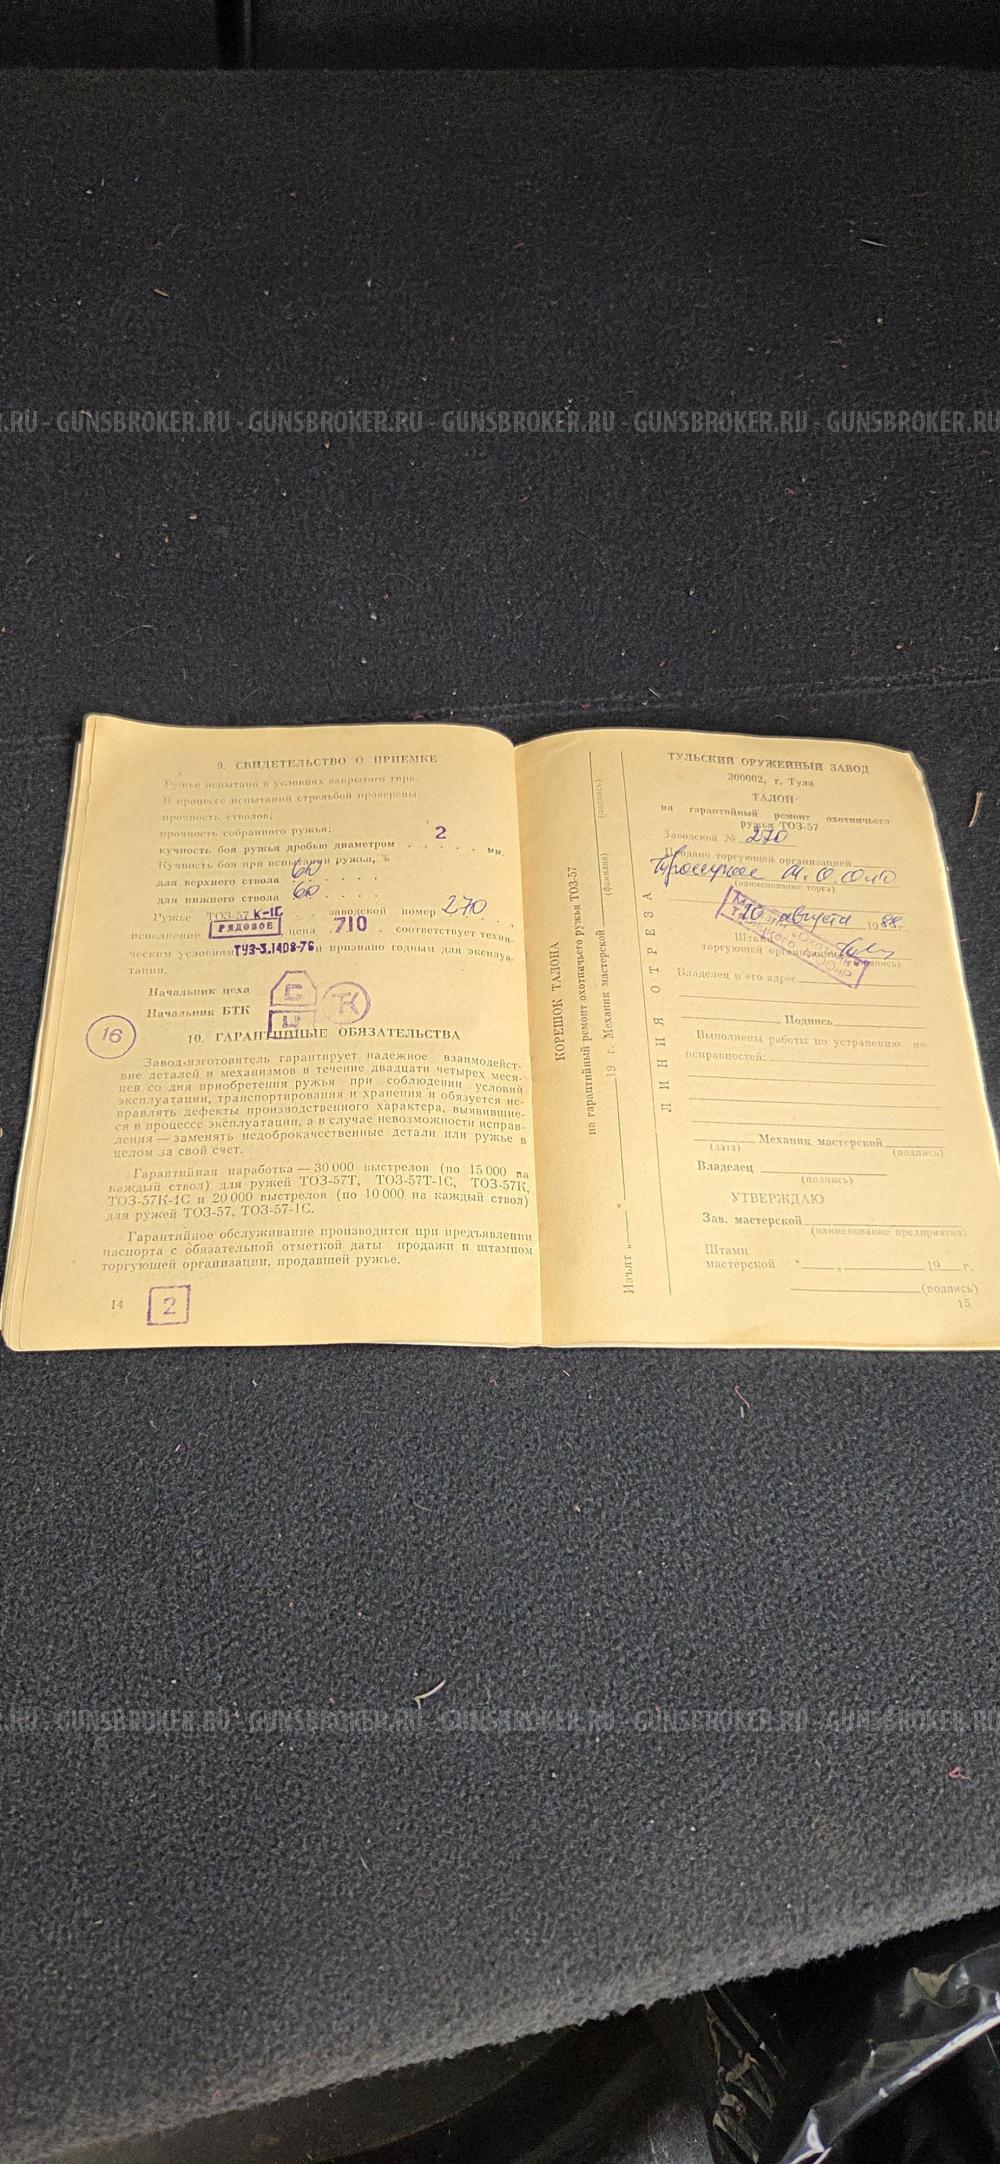 .RU - GUNSBROKER.RU - GUNSBROKER.RU - GUNSBROKER.RU - GUNSBROKER.RU - GUNSBROKER.RU
9. СВИДЕТЕЛЬСТВО О ПРИЕМКЕ
Ружье испытано в условиях закрытого тира.
В процессе испытаний стрельбой проверены:
прочность стволов;
прочность собранного ружья;
кучность боя ружья дробью диаметром . . . . . 2 мм.
Кучность боя при испытании ружья, %
для верхнего ствола 60 . . . .
для нижнего ствола 60 . . . .
Ружье ТОЗ-57 К-1С заводской номер 270
исполнение РЯДОВОЕ цена 710 , соответствует техни-
ческим условиям ТУ3-3.1408-76 и признано годным для эксплуа-
тации.
Начальник цеха
Начальник БТК
16
10. ГАРАНТИЙНЫЕ ОБЯЗАТЕЛЬСТВА
Завод-изготовитель гарантирует надежное взаимодейст-
вие деталей и механизмов в течение двадцати четырех меся-
цев со дня приобретения ружья при соблюдении условий
эксплуатации, транспортирования и хранения и обязуется ис-
правлять дефекты производственного характера, выявившие-
ся в процессе эксплуатации, а в случае невозможности исправ-
ления — заменять недоброкачественные детали или ружье в
целом за свой счет.
Гарантийная наработка — 30 000 выстрелов (по 15 000 на
каждый ствол) для ружей ТОЗ-57Т, ТОЗ-57Т-1С, ТОЗ-57К,
ТОЗ-57К-1С и 20 000 выстрелов (по 10 000 на каждый ствол)
для ружей ТОЗ-57, ТОЗ-57-1С.
Гарантийное обслуживание производится при предъявлении
паспорта с обязательной отметкой даты продажи и штампом
торгующей организации, продавшей ружье.
14
2
КОРЕШОК ТАЛОНА
на гарантийный ремонт охотничьего ружья ТОЗ-57
19 г. Механик мастерской (фамилия) (подпись)
Изъят „ “
ЛИНИЯ ОТРЕЗА
ТУЛЬСКИЙ ОРУЖЕЙНЫЙ ЗАВОД
300002, г. Тула
ТАЛОН
на гарантийный ремонт охотничьего
ружья ТОЗ-57
Заводской № 270
Продано торгующей организацией
(наименование торга)
10 августа 1988 г.
Штамп
торгующей организации (подпись)
Владелец и его адрес
Подпись
Выполнены работы по устранению не-
исправностей:
Механик мастерской
(дата) (подпись)
Владелец
(подпись)
УТВЕРЖДАЮ
Зав. мастерской
(наименование предприятия)
Штамп
мастерской „ “ 19 г.
(подпись)
15
.RU - GUNSBROKER.RU - GUNSBROKER.RU - GUNSBROKER.RU - GUNSBROKER.RU - GUNSBROKER.RU